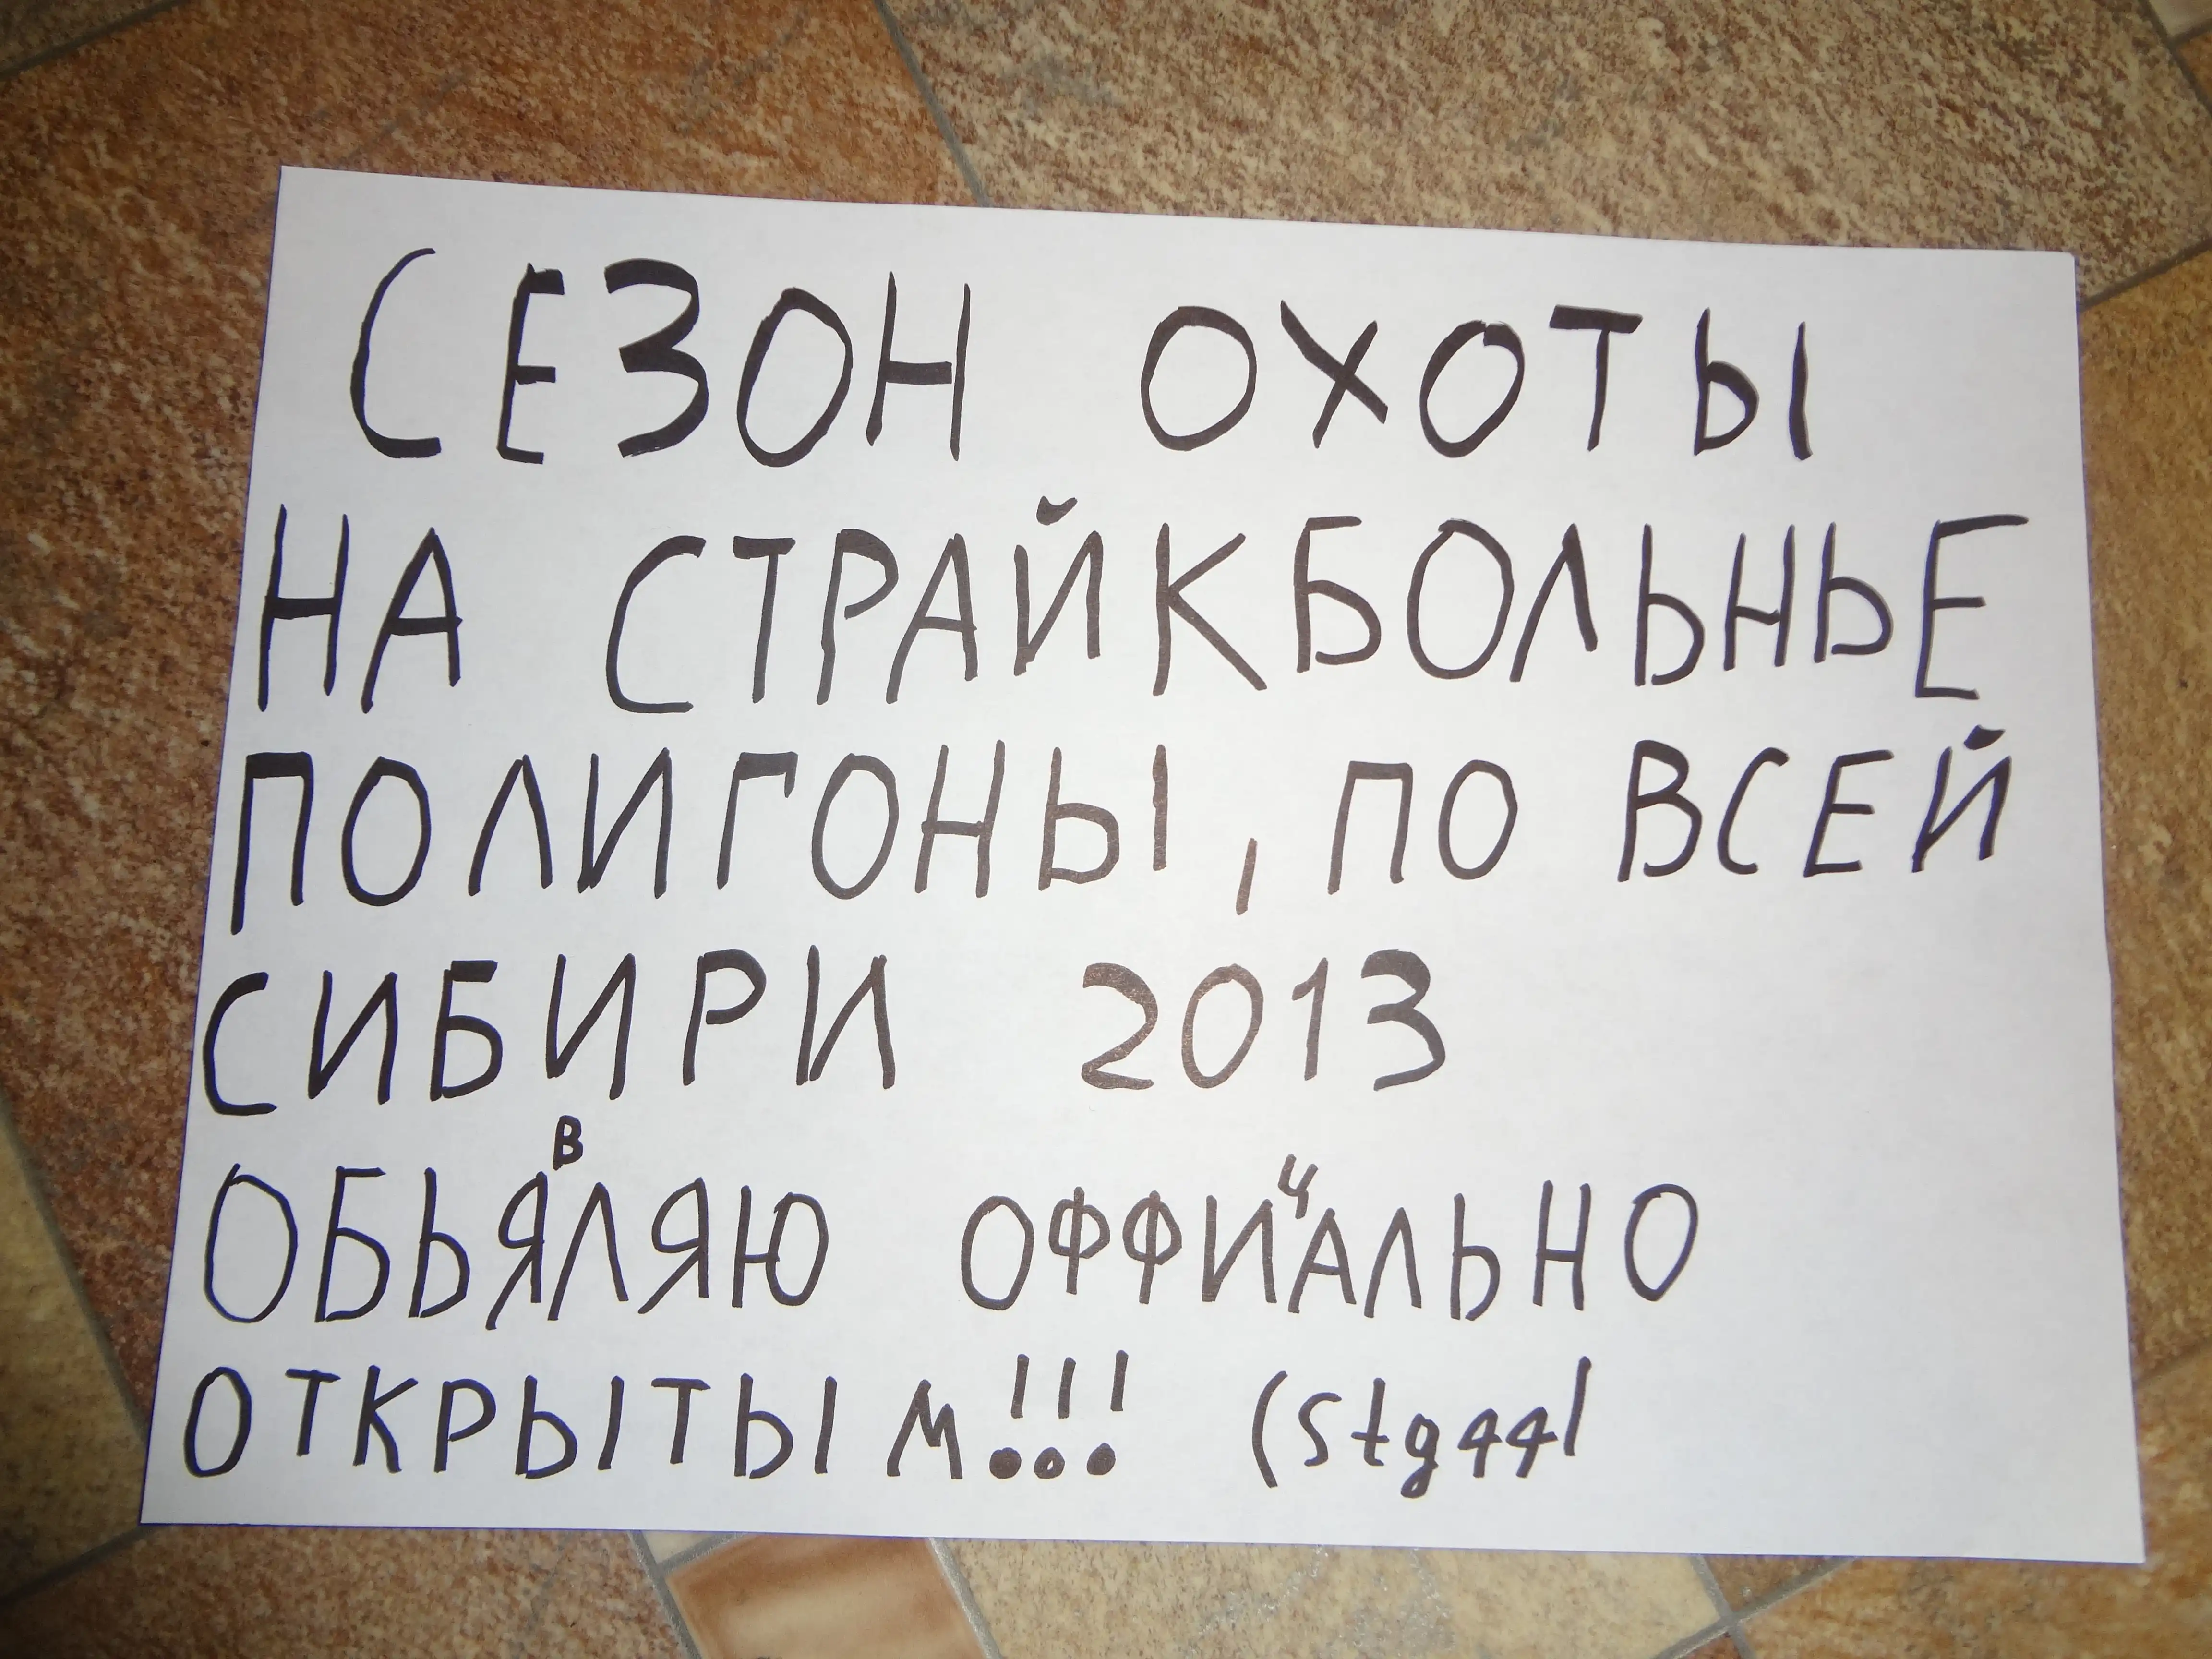 СЕЗОН ОХОТЫ
НА СТРАЙКБОЛЬНЬЕ
ПОЛИГОНЫ, ПО ВСЕЙ
СИБИРИ 2013
ОБЬЯВЛЯЮ ОФФИЧАЛЬНО
ОТКРЫТЫМ!!! (Stg44l